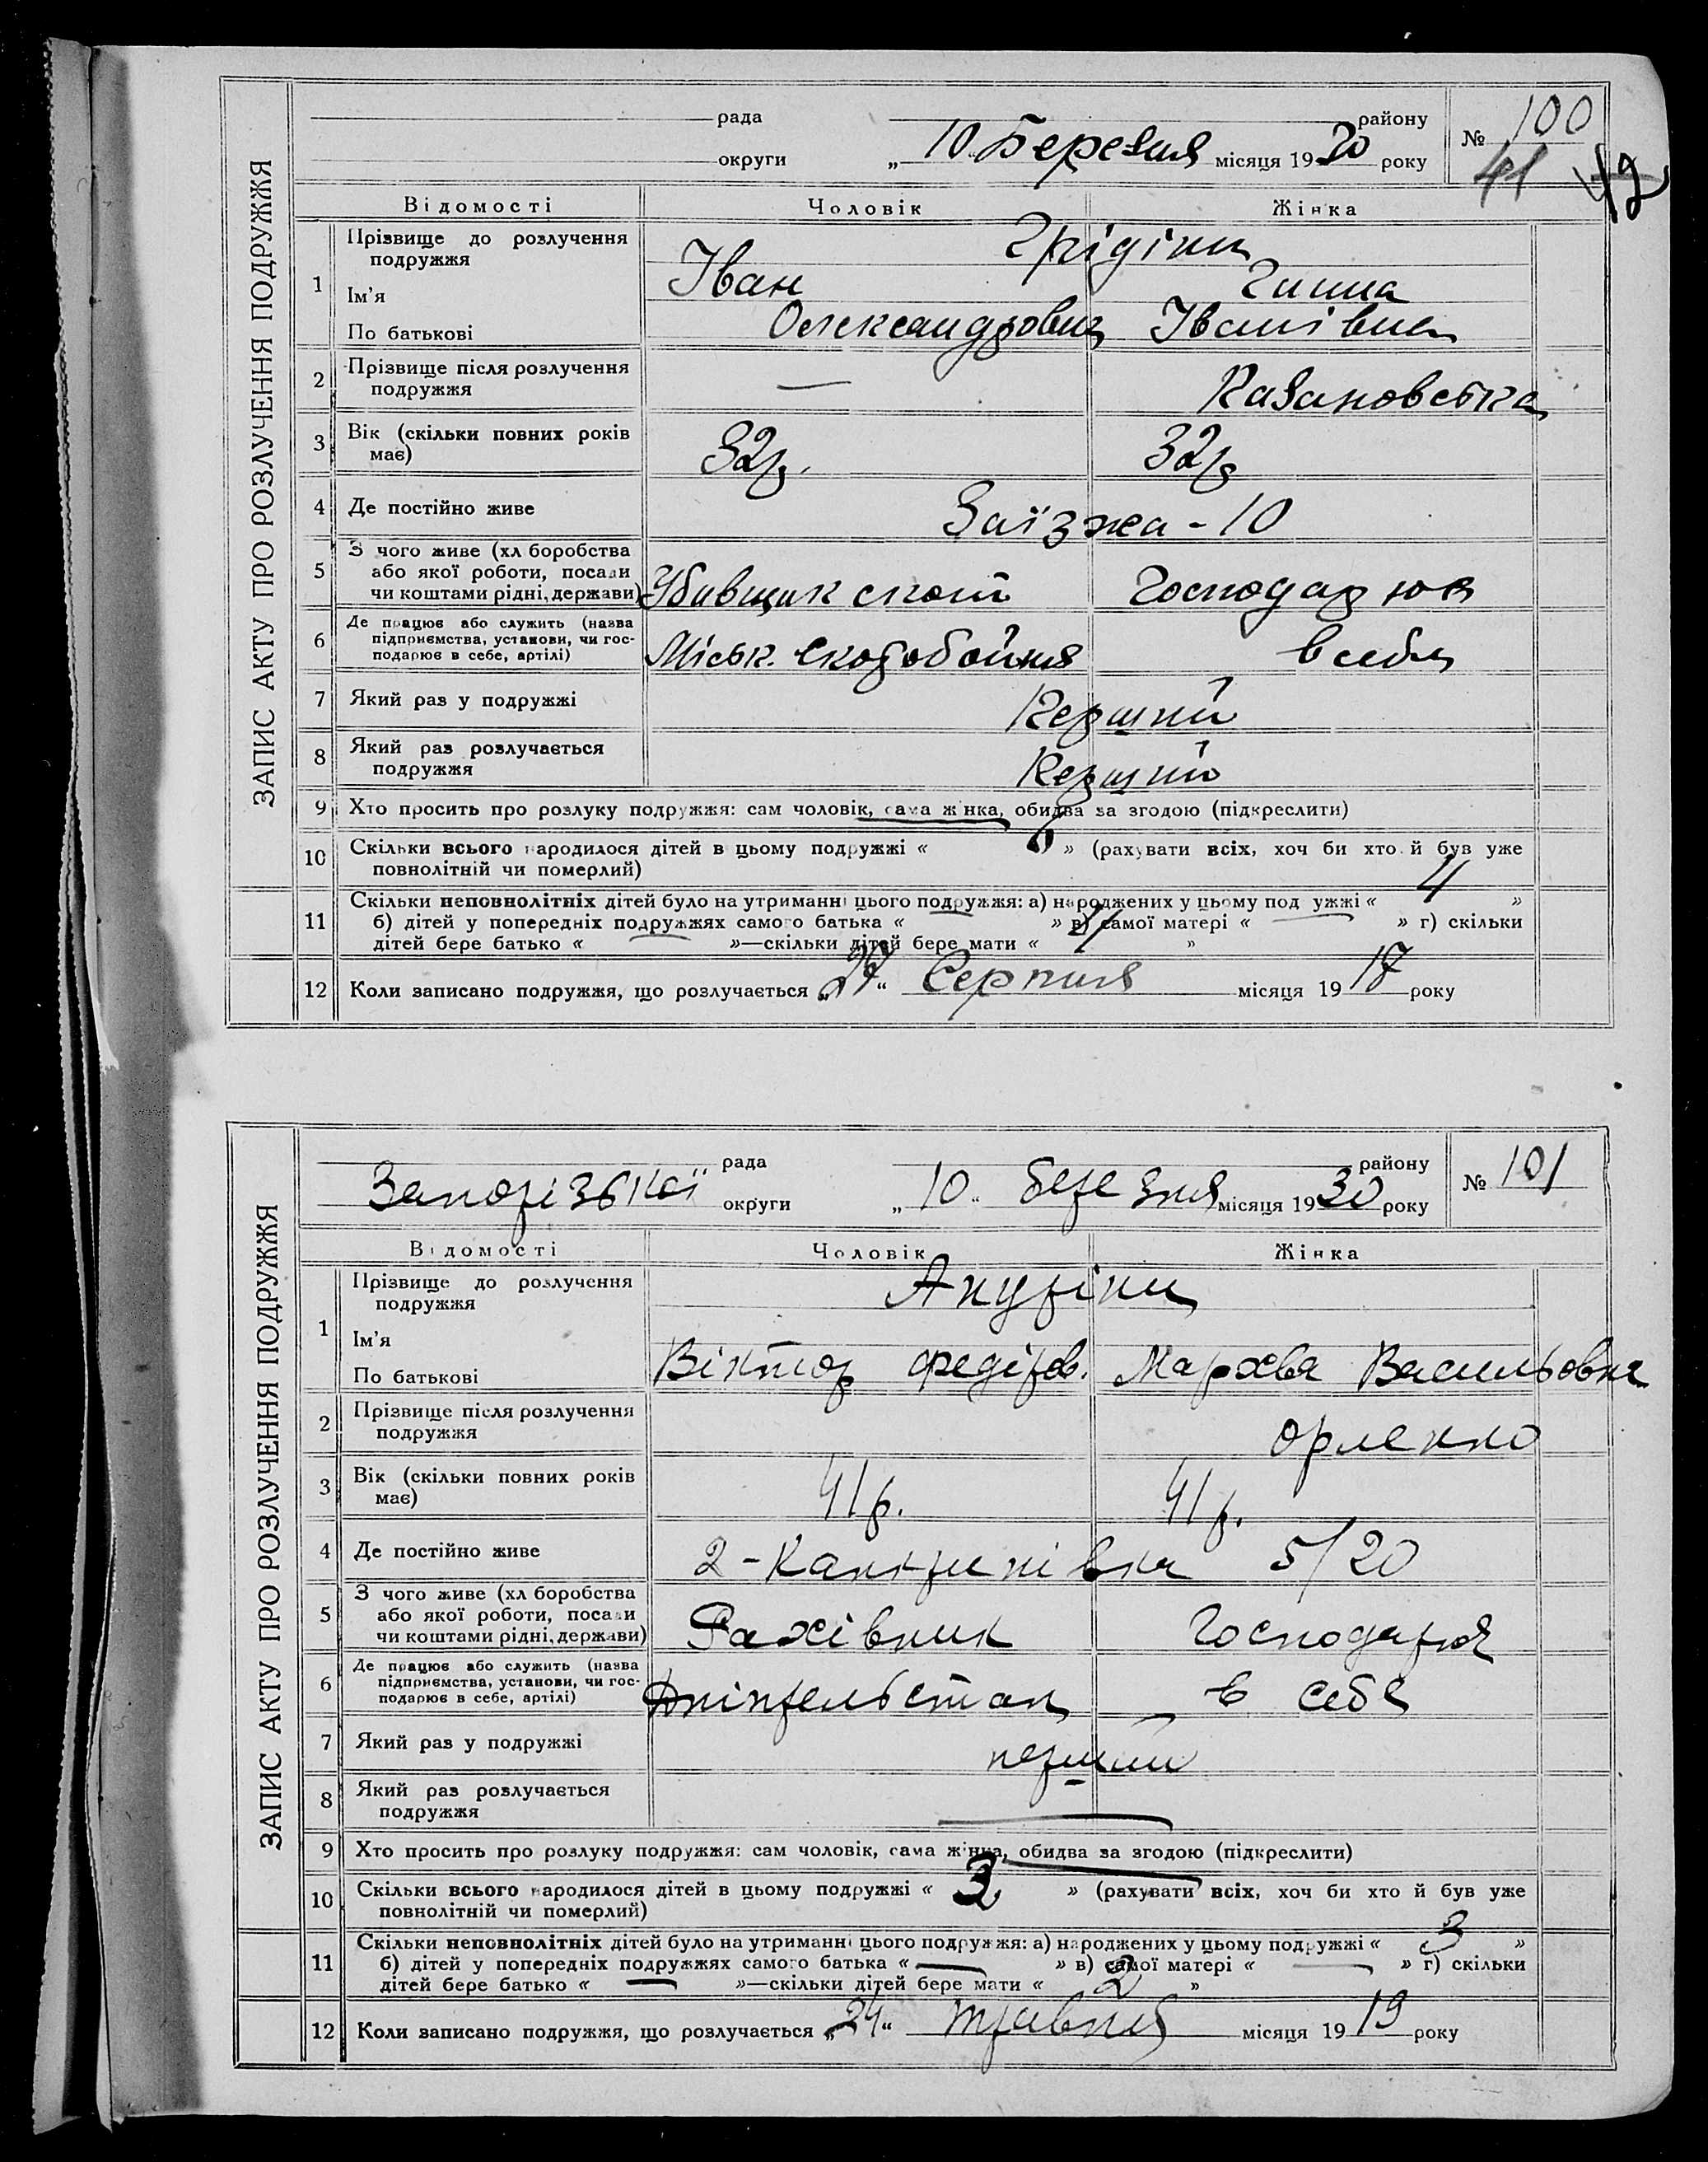 ЗАПИС АКТУ ПРО РОЗЛУЧЕННЯ ПОДРУЖЖЯ
рада району № 100
округи „10“ Березня місяця 1930 року
41 42
Відомості Чоловік Жінка
1 Прізвище до розлучення подружжя Грідіни
Ім'я Іван Ганна
По батькові Олександрович Іванівна
2 Прізвище після розлучення
подружжя — Казановська
3 Вік (скільки повних років
має) 32р. 32р
4 Де постійно живе Заїзжа - 10
5 З чого живе (хліборобства
або якої роботи, посади
чи коштами рідні, держави) Убивщик скот Господарює
6 Де працює або служить (назва
підприємства, установи, чи гос-
подарює в себе, артілі) Міськ. Скотобойня в себя
7 Який раз у подружжі Перший
8 Який раз розлучається
подружжя Перший
9 Хто просить про розлуку подружжя: сам чоловік, сама жінка, обидва за згодою (підкреслити)
10 Скільки всього народилося дітей в цьому подружжі « 6 » (рахувати всіх, хоч би хто й був уже
повнолітній чи померлий)
11 Скільки неповнолітніх дітей було на утриманні цього подружжя: а) народжених у цьому подружжі « 4 »
б) дітей у попередніх подружжях самого батька « — » в) самої матері « — » г) скільки
дітей бере батько « » — скільки дітей бере мати « 4 »
12 Коли записано подружжя, що розлучається „27“ Серпня місяця 1917 року
ЗАПИС АКТУ ПРО РОЗЛУЧЕННЯ ПОДРУЖЖЯ
рада району № 101
Запорізької округи „10“ березня місяця 1930 року
Відомості Чоловік Жінка
1 Прізвище до розлучення
подружжя Акуріни
Ім'я
По батькові Віктор Федіров. Мархва Васильовна
2 Прізвище після розлучення
подружжя Орленко
3 Вік (скільки повних років
має) 41р. 41р.
4 Де постійно живе 2-Канкринівка 5/20
5 З чого живе (хліборобства
або якої роботи, посади
чи коштами рідні, держави) Рахівник Господарює
6 Де працює або служить (назва
підприємства, установи, чи гос-
подарює в себе, артілі) Дніпрельстан в себе
7 Який раз у подружжі перший
8 Який раз розлучається
подружжя —
9 Хто просить про розлуку подружжя: сам чоловік, сама жінка, обидва за згодою (підкреслити)
10 Скільки всього народилося дітей в цьому подружжі « 3 » (рахувати всіх, хоч би хто й був уже
повнолітній чи померлий)
11 Скільки неповнолітніх дітей було на утриманні цього подружжя: а) народжених у цьому подружжі « 3 »
б) дітей у попередніх подружжях самого батька « — » в) самої матері « — » г) скільки
дітей бере батько « — » — скільки дітей бере мати « 2 »
12 Коли записано подружжя, що розлучається „24“ травня місяця 1919 року